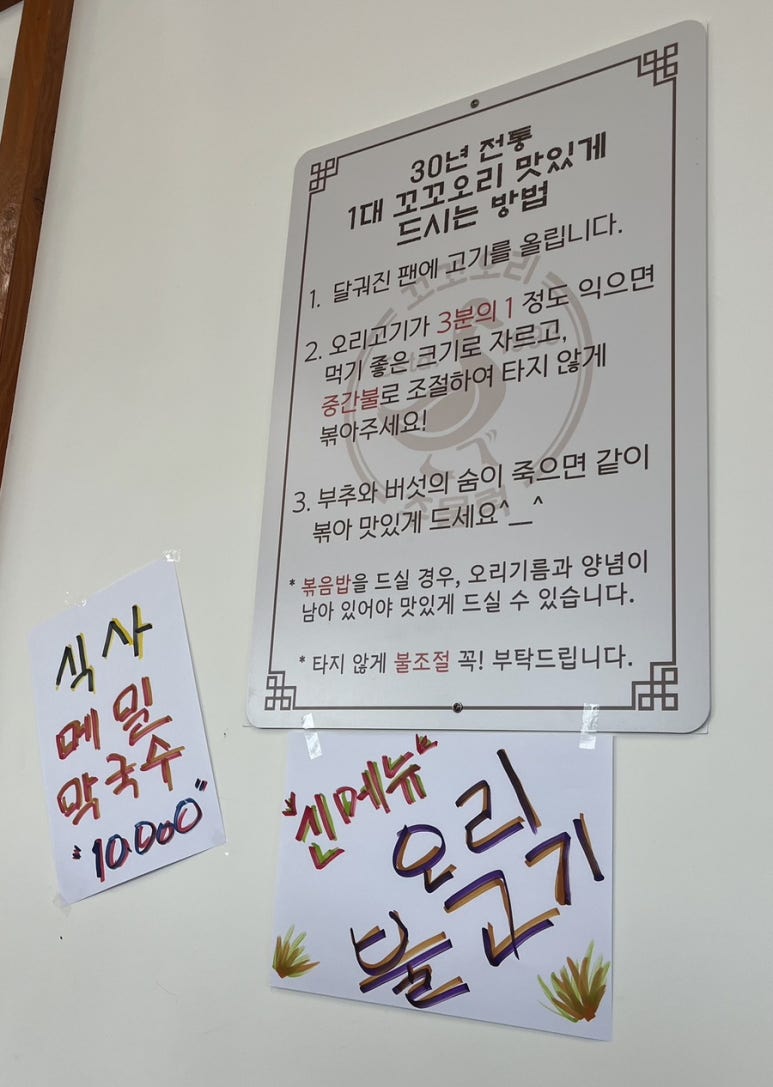 30년 전통
1대 꼬꼬오리 맛있게
드시는 방법
1. 달궈진 팬에 고기를 올립니다.
2. 오리고기가 3분의 1 정도 익으면
먹기 좋은 크기로 자르고,
중간불로 조절하여 타지 않게
볶아주세요!
3. 부추와 버섯의 숨이 죽으면 같이
볶아 맛있게 드세요^__^
* 볶음밥을 드실 경우, 오리기름과 양념이
남아 있어야 맛있게 드실 수 있습니다.
* 타지 않게 불조절 꼭! 부탁드립니다.
꼬꼬오리
주물럭
식사
메밀
막국수
"10000"
"신메뉴"
오리
불고기